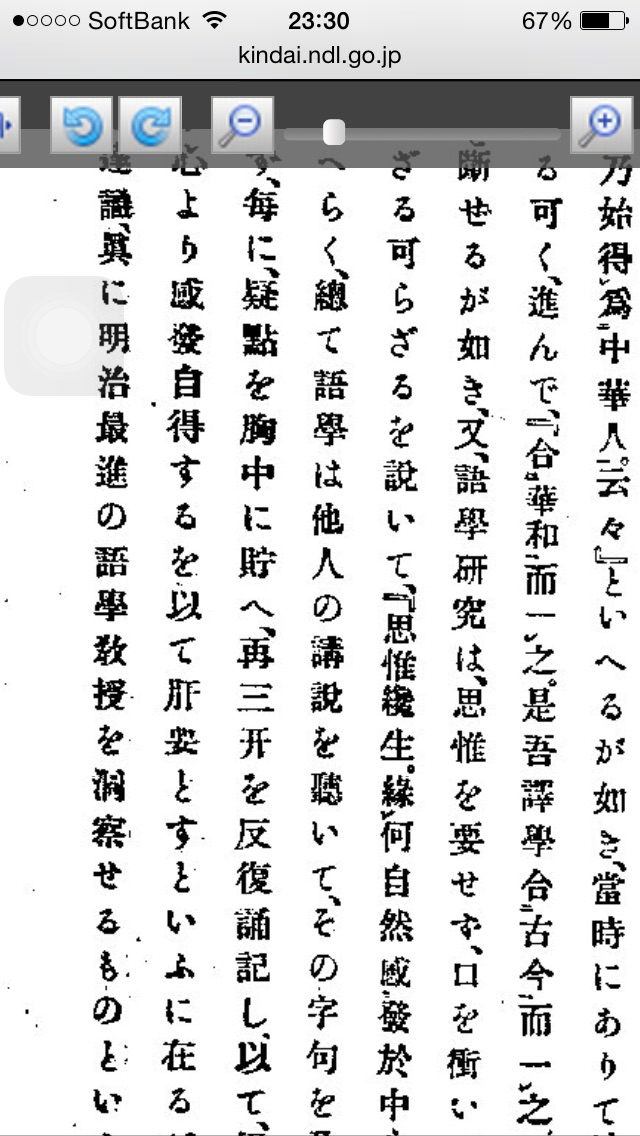 SoftBank 23:30 67%
kindai.ndl.go.jp
乃始得爲中華人。云々』といへるが如き、當時にありて
る可く、進んで、『合華和而一之。是吾譯學合古今而一之
斷せるが如き、又、語學研究は、思惟を要せず、口を衝い
ざる可らざるを說いて、『思惟纔生。緣何自然感發於中
へらく、總て語學は他人の講說を聽いて、その字句を
ず、每に、疑點を胸中に貯へ、再三开を反復誦記し、以て、
心より感發自得するを以て肝要とすといふに在る
達識、眞に明治最進の語學敎授を洞察せるものとい